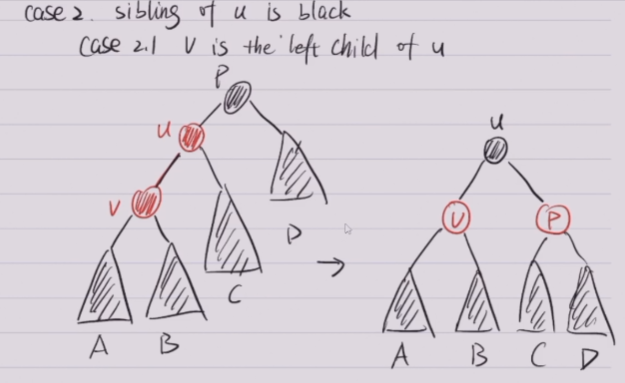 case 2. sibling of u is black
case 2.1 V is the left child of u
P
u
u
V
V
P
D
C
A
B
A
B
C
D